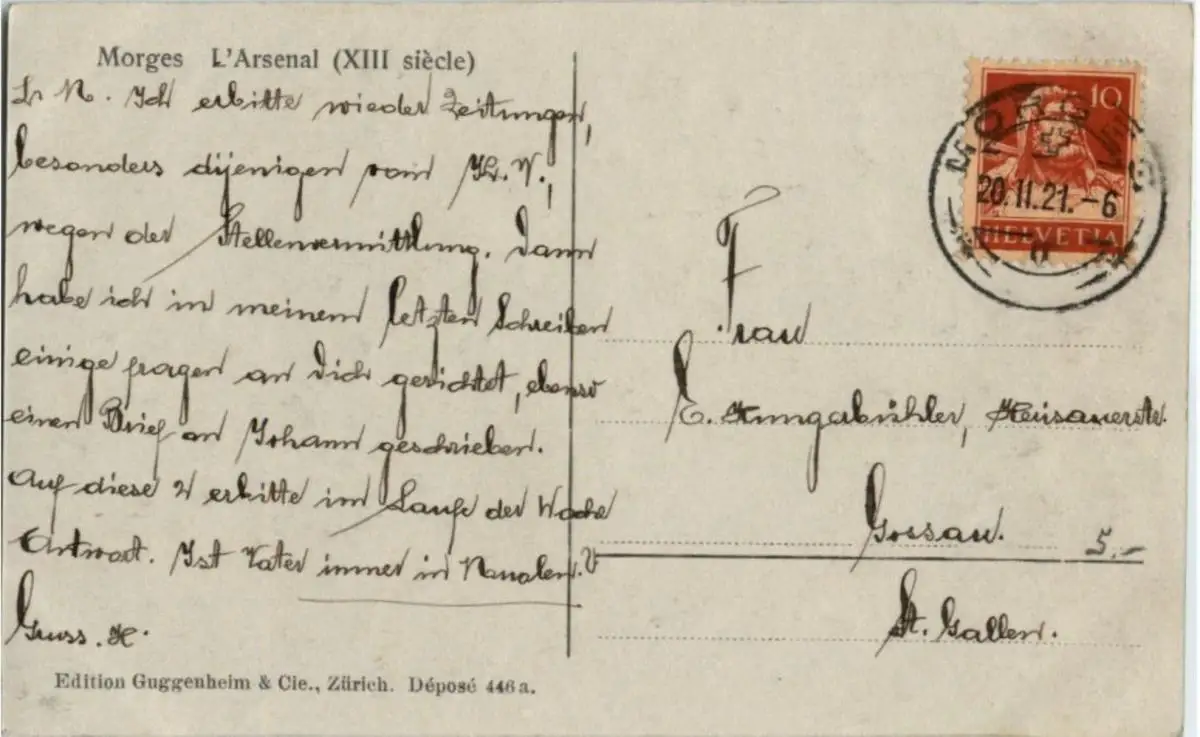 Morges L'Arsenal (XIII siècle)
L. M. Ich erbitte wieder Zeitungen,
besonders dijenigen vom
wegen der Stellenvermittlung. Dann
habe ich in meinem letzten Schreiben
einige fragen an Dich gerichtet, ebenso
einen Brief an Johann geschrieben.
Auf diese 2 erbitte im Laufe der Woche
Antwort. Ist Vater immer in
Gruss. H.
Edition Guggenheim & Cie., Zürich. Déposé 446a.
10
MORGES
20.II.21.-6
HELVETIA
Frau
Gossau.
5.-
St. Gallen.